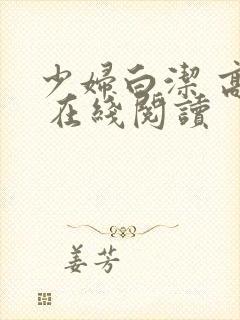 少婦白潔 高
在綫閱讀
姜芳